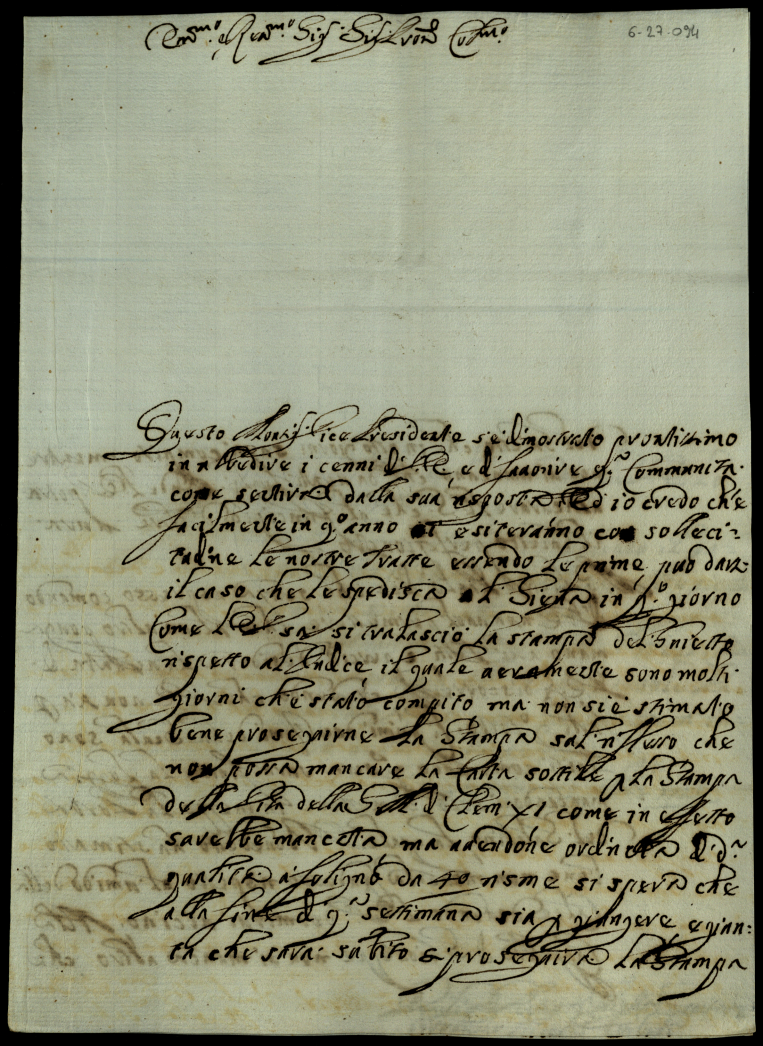 Em.mo e Rev.mo Sig.r Sig.r Pron Col.mo
6-27-094
Questo Monsig. Vice Presidente s'e dimostrato prontissimo
in ubbedire i cenni di e di favorire q.ta Communita
come sentira dalla sua risposta ed io credo che
facilmente in q.o anno esiteranno con solleci=
tudine le nostre tratte essendo le prime può darsi
il caso che le spedisca in q.o giorno
Come sa si tralasciò la stampa del
rispetto al Indice il quale veramente sono molti
giorni che stato compito ma non si è stimato
bene proseguirne la stampa sul riflesso che
non possa mancare la Carta sottile p la Stampa
della Vita della di Clem. XI come in effetto
sarebbe mancata ma avendone ordinata di d.a
qualità a Foligno da 40 risme si spera che
alla fine di q.a settimana sia p giungere e giun=
ta che sarà subito si proseguirà la Stampa